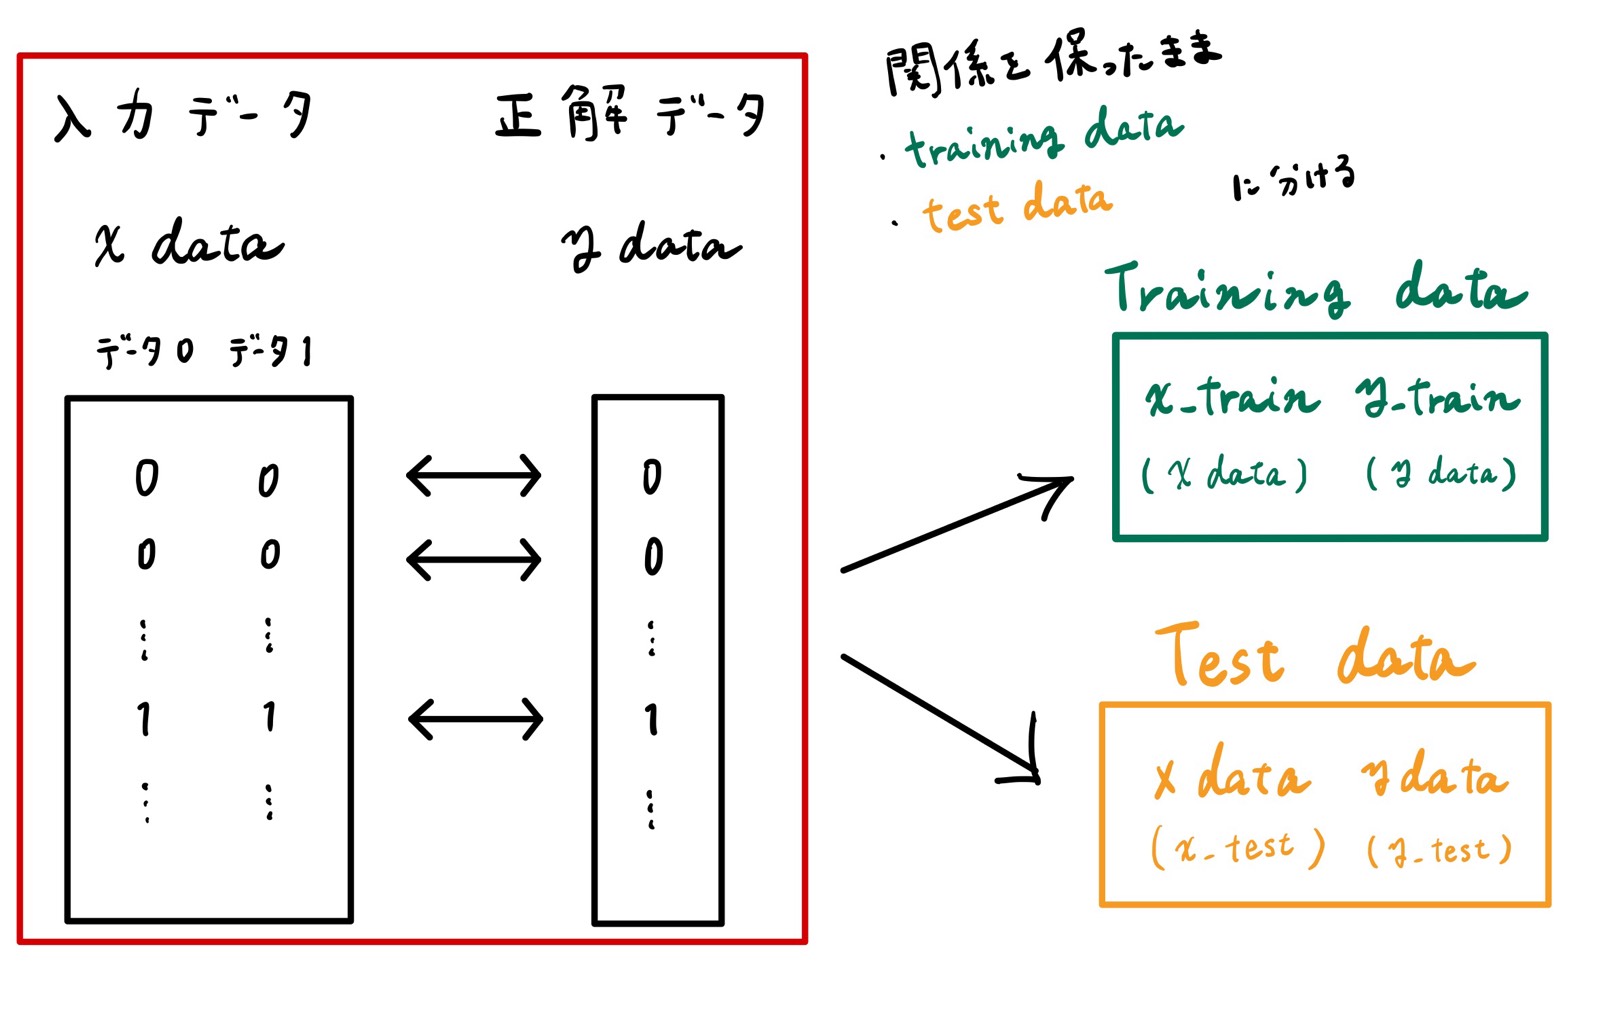 入力データ 正解データ
x data y data
データ0 データ1
0 0 ↔ 0
0 0 ↔ 0
⋮ ⋮ ⋮
1 1 ↔ 1
⋮ ⋮ ⋮
関係を保ったまま
・training data
・test data
に分ける
Training data
x_train y_train
(x data) (y data)
Test data
x data y data
(x_test) (y_test)